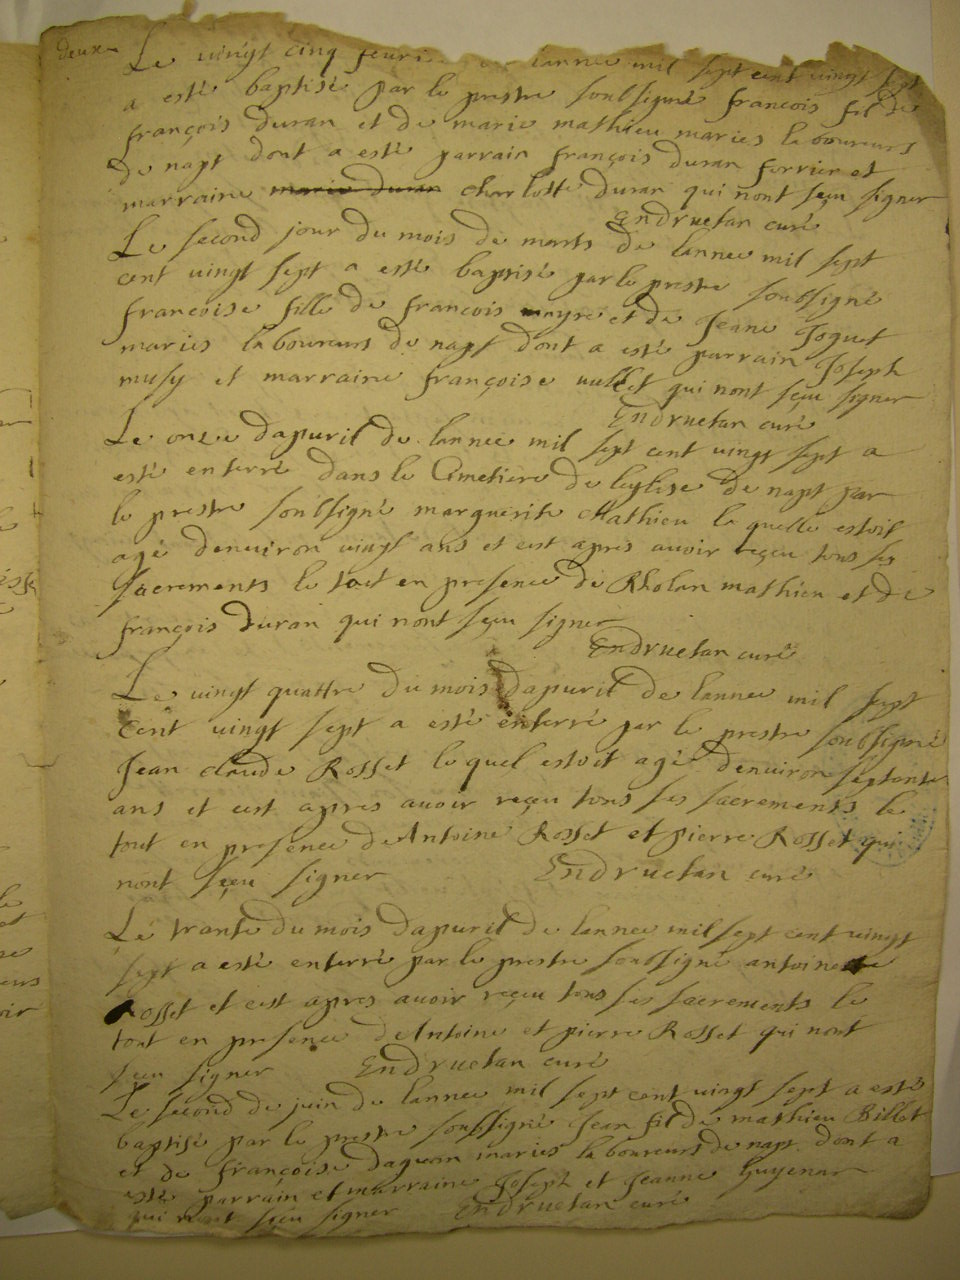 deux
Le vingt cinq feurie de lannee mil sept cent vingt sept
a esté baptisé par le prestre soubsigné francois fil de
françois Duran et de marie mathieu maries laboureurs
de napt dont a esté parrain françois duran ferrier et
marraine marie duran charlotte duran qui nont sçeu signer
Endruetan curé
Le second jour du mois de marts de lannee mil sept
cent vingt sept a esté baptisée par le prestre soubsigné
francoise fille de francois et de Jeane Joguet
maries laboureurs de napt dont a esté parrain Joseph
musy et marraine françoise qui nont sçeu signer
Endruetan curé
Le onze dapuril de lannee mil sept cent vingt sept a
esté enterré dans le Cimetiere de leglise de napt par
le prestre soubsigné marguerite Mathieu la quelle estoit
agé denuiron vingt ans et cest apres auoir reçeu tous ses
sacrements le tout en presence de Rholan mathieu et de
françois Duran qui nont sçeu signer
Endruetan curé
Le vingt quattre du mois dapuril de lannee mil sept
cent vingt sept a esté enterré par le prestre soubsigné
Jean claude Rosset lequel estoit agé denuiron septente
ans et cest apres auoir reçeu tous ses sacrements le
tout en presence de Antoine Rosset et pierre Rosset qui
nont sçeu signer Endruetan curé
Le trante du mois dapuril de lannee mil sept cent vingt
sept a esté enterré par le prestre soubsigné antoine
Rosset et cest apres auoir reçeu tous ses sacrements le
tout en presence de Antoine et pierre Rosset qui nont
sçeu signer Endruetan curé
Le second de juin de lannee mil sept cent vingt sept a esté
baptisé par le prestre soubsigné Jean fil de mathieu Billet
et de françoise daguin maries laboureurs de napt dont a
esté parrain et marraine Joseph et Jeanne Guyenar
qui nont sçeu signer Endruetan curé